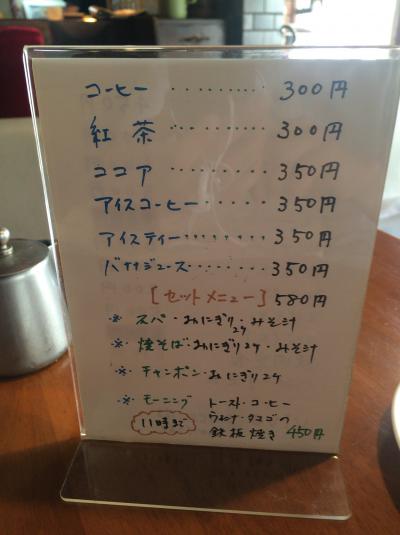 コーヒー ․․․․․․․․․․ 300円
紅茶 ․․․․․․․․․․ 300円
ココア ․․․․․․․․․ 350円
アイスコーヒー ․․․․․․․ 350円
アイスティー ․․․․․․․․ 350円
バナナジュース ․․․․․․․ 350円
[セットメニュー] 580円
※ スパ・おにぎり2ケ・みそ汁
※ 焼そば・おにぎり2ケ・みそ汁
※ チャンポン・おにぎり2ケ
※ モーニング トースト・コーヒー
11時まで ウインナ・タマゴの
鉄板焼き 450円